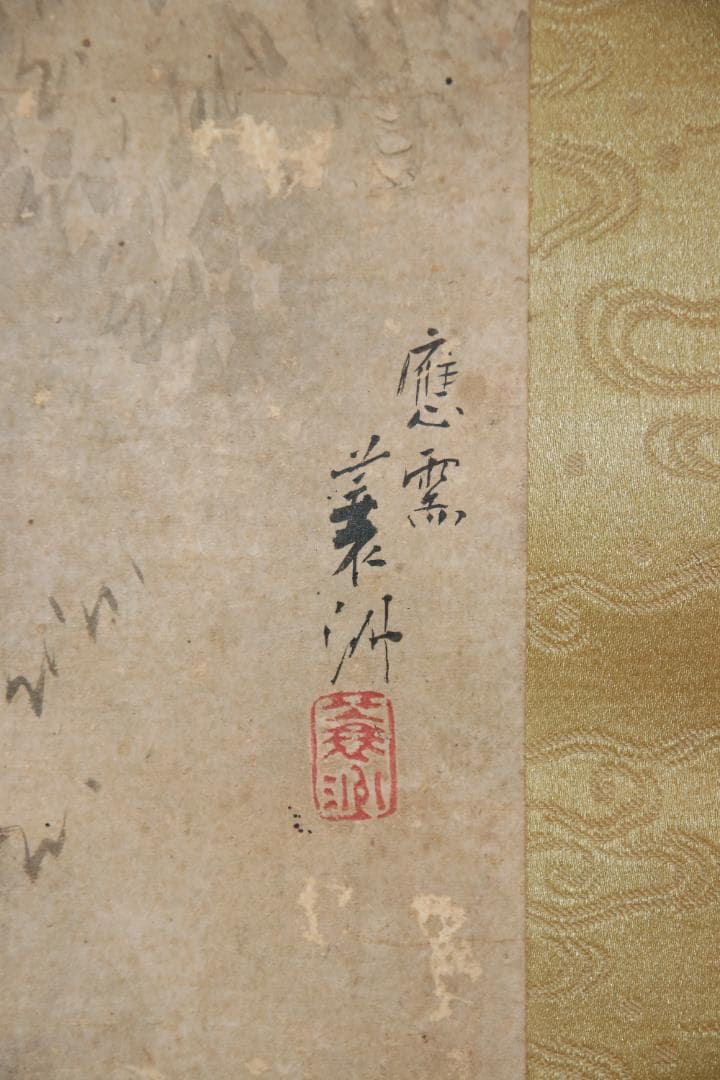 應需
蓑洲
蓑洲